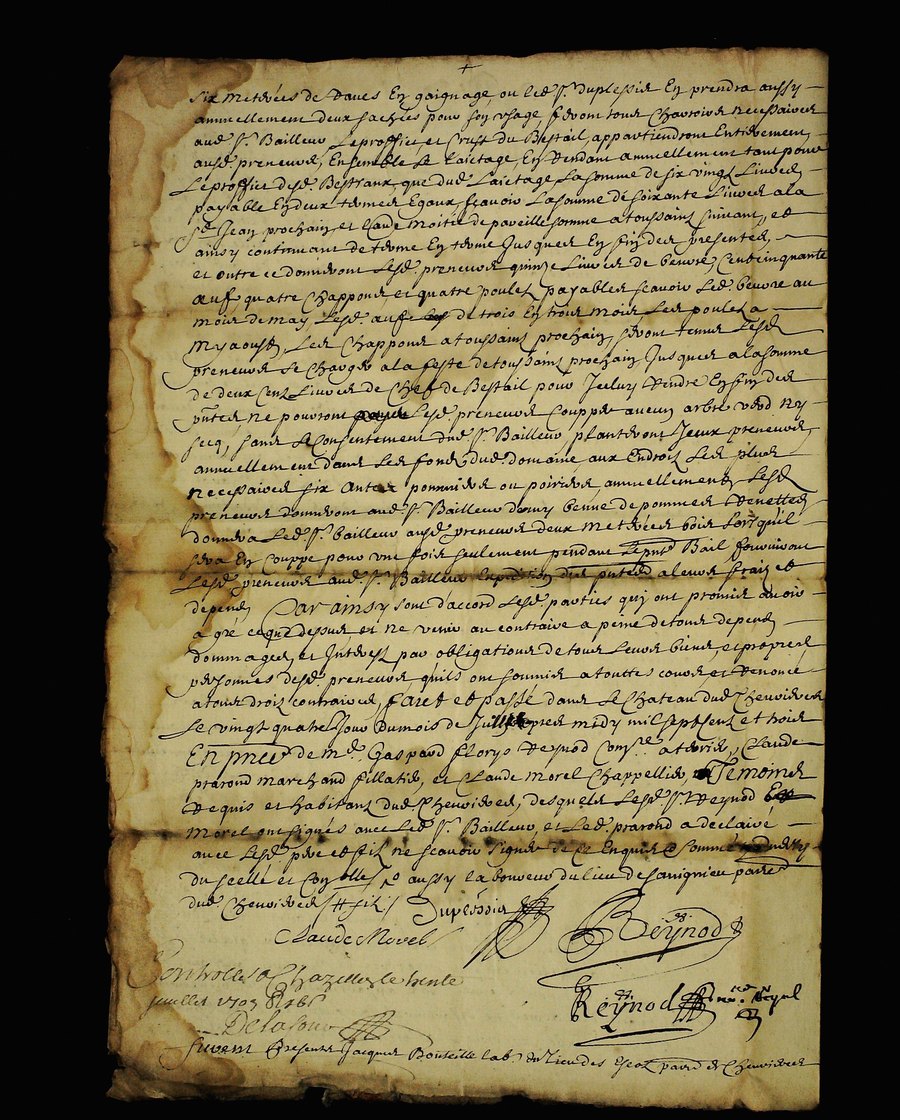 six metrées de Raves En gaignage, ou led. Sr. Duplessie En prendra aussy
annuellement deux sachées pour son usage, seront tous Charrois necessaires
aud. Sr. Bailleur Leproffict et Crust du Bestail, appartiendront Entierement
ausd. preneurs, Ensemble Le Laictage, En Rendant annuellement tant pour
Leproffict desd. Bestiaux, que dud. Laictage, Lasomme de six vingt Livres
payable En deux termes Egaux, scavoir Lasomme de soixante Livres a la
St. Jean prochain et Laude moitié de pareille somme a toussainct suivant, et
ainsy continuant de terme En terme Jusques En fin des presentes,
et outre ce donneront Lesd. preneurs quinze Livres de beurre, Cent cinquante
œufs quatre Chappons et quatre poulets payables scavoir Led. beurre au
mois de may Lesd. œufs de trois En trois mois Les poulets a
my aoust, Les Chappons a toussainct prochain, seront tenus Lesd.
preneurs se Charger a la feste de toussainct prochain Jusques a la somme
de deux Cent Livres de Chef de Bestail pour Jceluy Rendre En fin des
pntes ne pourront Lesd. preneurs Coupper aucun arbre verd ny
secq, sans le Consentement dud. Sr. Bailleur planteront Jceux preneurs,
annuellement dans Les fonds dud. domaine, aux Endroits Les plus
necessaires six Antes pommiers ou poiriers annuellement, Lesd.
preneurs donneront aud. Sr. Bailleur demy benne de pommes Renettes
donnera Led. Sr. bailleur ausd. preneurs deux metrées bois Lorsqu'il
sera En Couppe pour une fois seulement pendant Le pnt Bail fourniront
Lesd. preneurs aud. Sr. Bailleur Expedition des pntes a leurs fraix et
depens Car ainsy sont d'accord Lesd. parties quy ont promis avoir
a gré ce que dessus et ne venir au contraire a peine de tous depens
dommages, et Interest par obligations de tous Leurs biens, et propres
personnes desd. preneurs quils ont soumis a touttes cours, et renoncé
a tous droits contraires, faict et passé dans Le Chateau dud. Chevrieres
Le vingt quatre Jour Du mois de Juillet apres midy mil sept Cent et trois
En pnce de Me. Gaspard Reynod a , Claude
prarond marchand fillatier, et Claude morel Chappellier, Temoins
Requis et habitans dud. Chevrieres, desquels Lesd. Sr. Reynod Et
Morel ont signés avec Led. Sr. Bailleur, et Led. prarond a declairé
avec Lesd. pere et fils ne scavoir signer de Ce Enquis et sommé
du seellé et aussy laboureur du lieu de Savignieu parre
dud. Chevrieres
Duplessie
Reynod
Claude Morel
Controllé a Chazelles le trente
Juillet 1703
Reynod
Delafont
furent presents Jacques Bouteille lab. du lieu des parre de Chevrieres